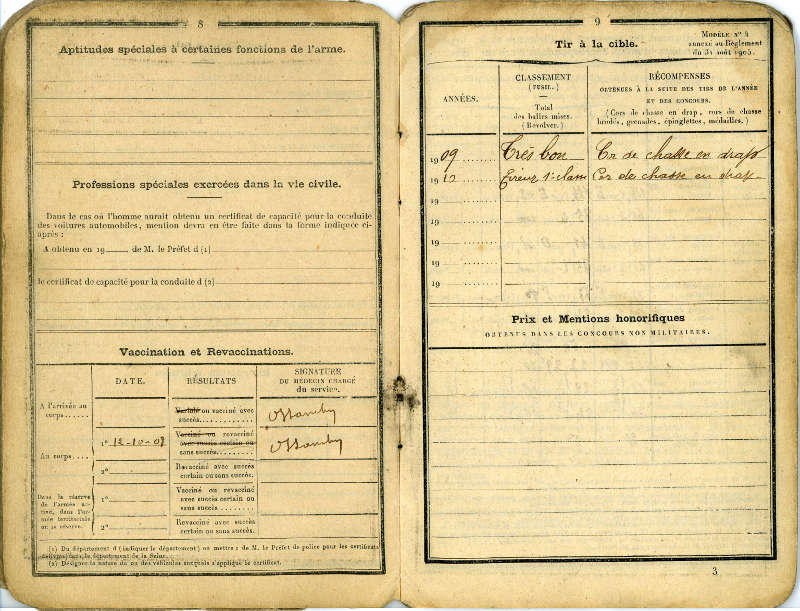 8
Aptitudes spéciales à certaines fonctions de l'arme.
Professions spéciales exercées dans la vie civile.
Dans le cas où l'homme aurait obtenu un certificat de capacité pour la conduite
des voitures automobiles, mention devra en être faite dans la forme indiquée ci-
après :
A obtenu en 19 de M. le Préfet d (1)
le certificat de capacité pour la conduite d (2)
Vaccination et Revaccinations.
DATE.
RÉSULTATS
SIGNATURE
DU MÉDECIN CHARGÉ
du service.
A l'arrivée au
corps......
Variolé ou vacciné avec
succès.............
Au corps....
1° 12-10-07
Vacciné ou revacciné
avec succès certain ou
sans succès.........
2°
Revacciné avec succès
certain ou sans succès.
Dans la réserve
de l'armée ac-
tive, dans l'ar-
mée territoriale
ou sa réserve.
1°
Vacciné ou revacciné
avec succès certain ou
sans succès.......
2°
Revacciné avec succès
certain ou sans succès.
(1) Du département d (indiquer le département) ou mettre : de M. le Préfet de police pour les certificats
délivrés dans le département de la Seine.
(2) Désigner la nature du ou des véhicules auxquels s'applique le certificat.
9
Tir à la cible.
MODÈLE N° 4
annexé au Règlement
du 31 août 1905.
ANNÉES.
CLASSEMENT
(FUSIL.)
Total
des balles mises.
(Revolver.)
RÉCOMPENSES
OBTENUES À LA SUITE DES TIRS DE L'ANNÉE
ET DES CONCOURS.
(Cors de chasse en drap, cors de chasse
brodés, grenades, épinglettes, médailles.)
1909 ....... Très bon Cor de chasse en drap
19 ....... Tireur 1e classe Cor de chasse en drap
19 .......
19 .......
19 .......
19 .......
19 .......
Prix et Mentions honorifiques
OBTENUS DANS LES CONCOURS NON MILITAIRES.
3